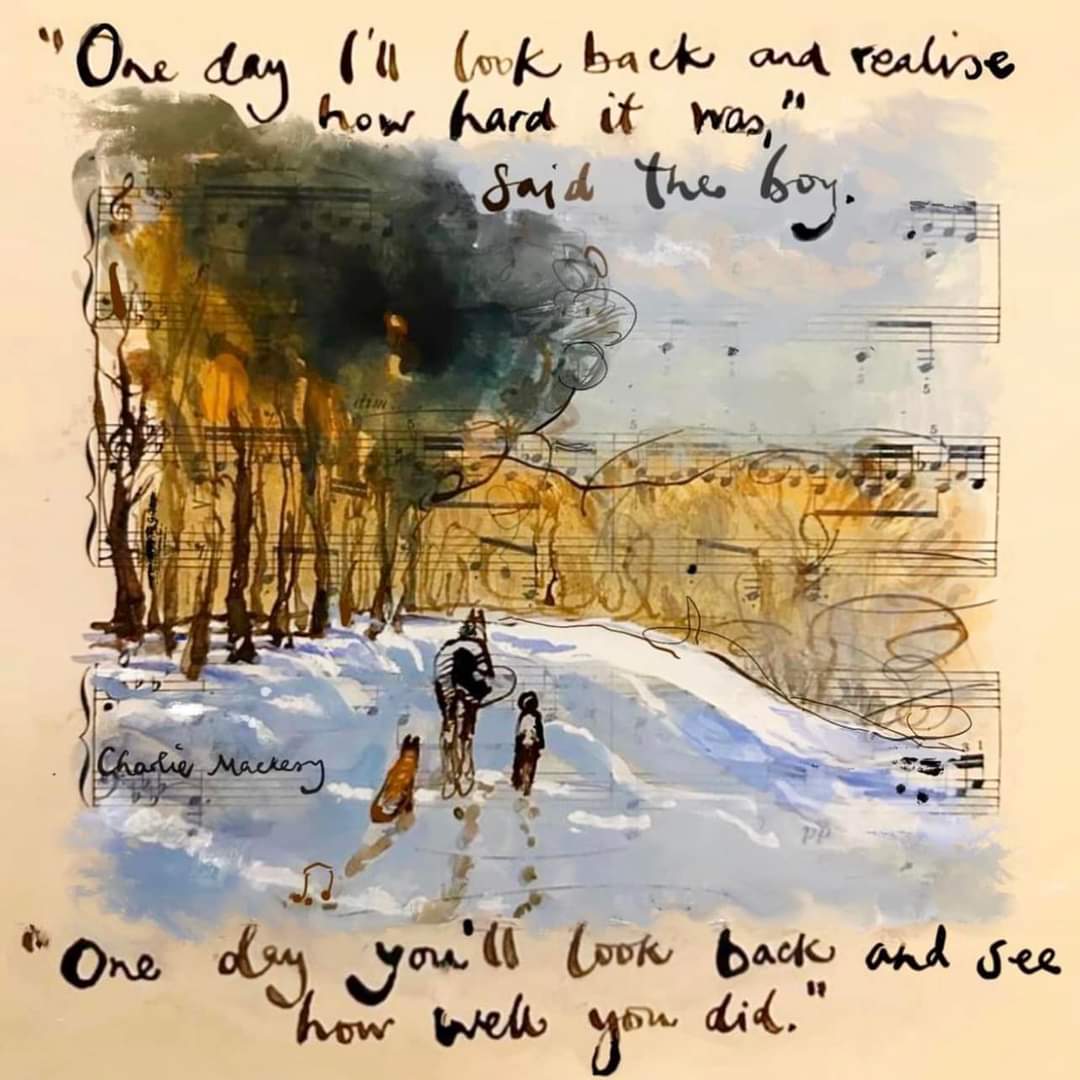 "One day I'll look back and realise
how hard it was,"
said the boy.
dim.
Charlie Mackesy
pp
"One day you'll look back and see
how well you did."